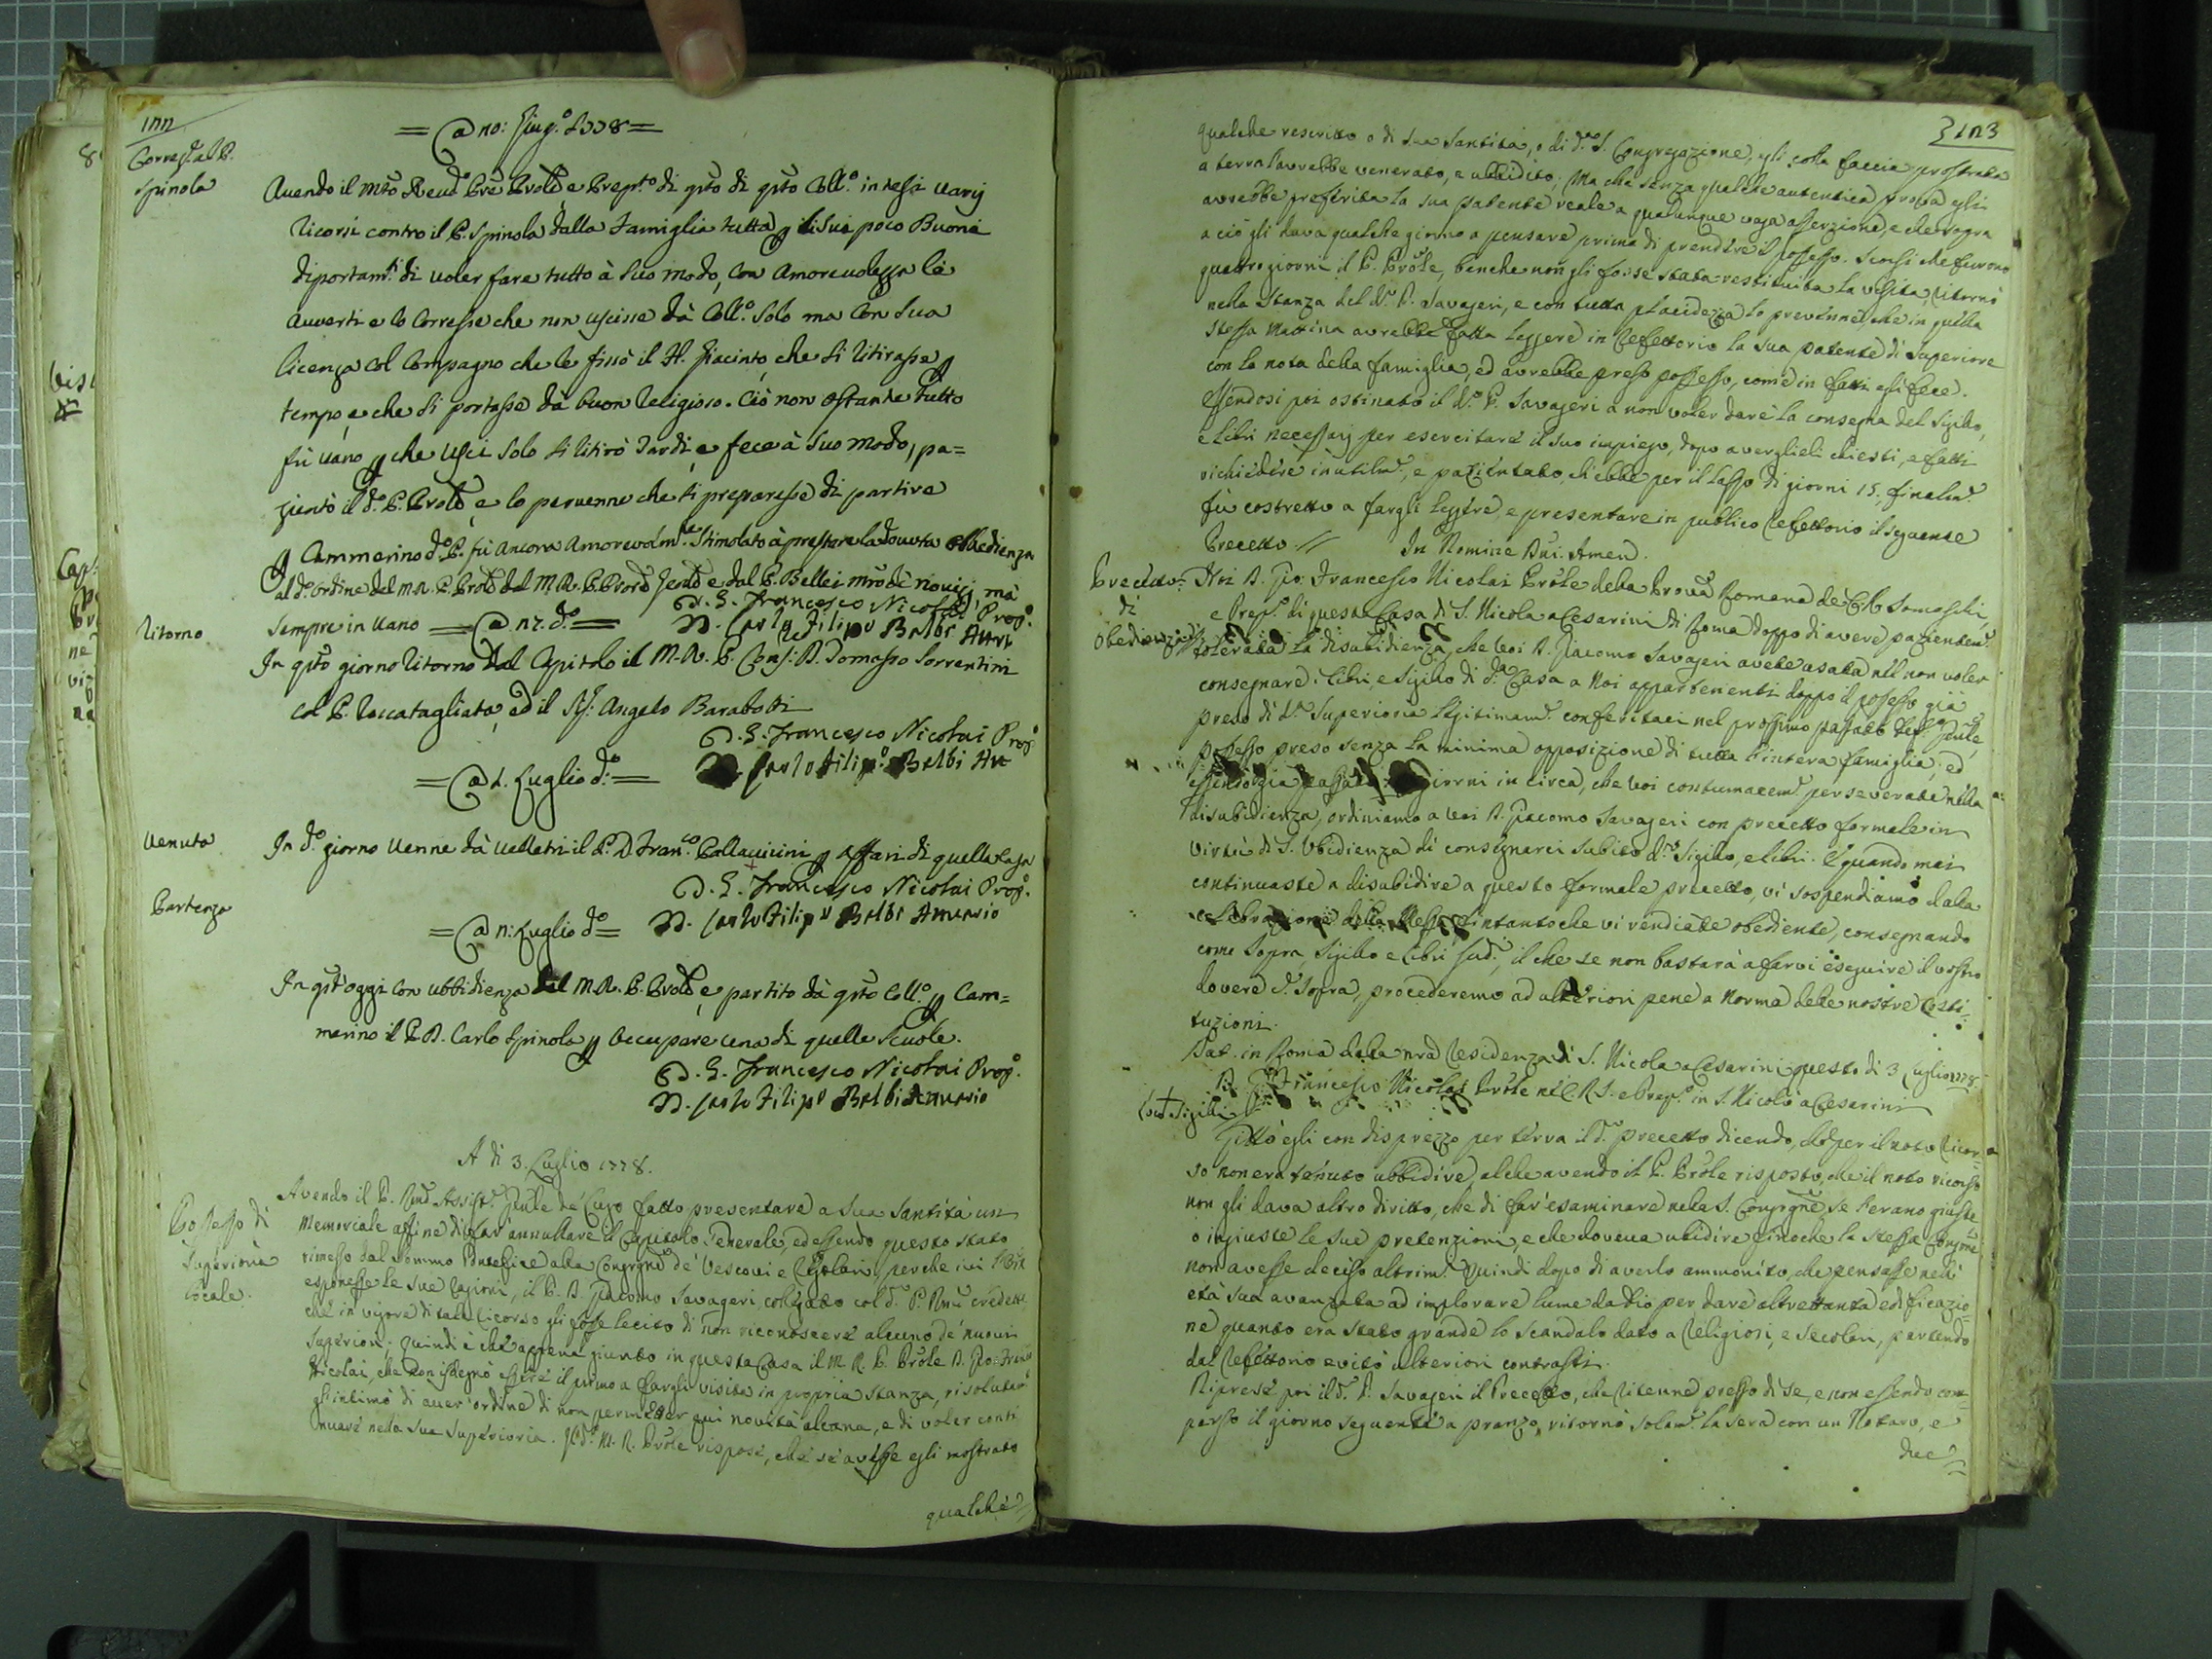 Corregs.al P.
Spinola
= @ no: Giug.o 1778 =
Auendo il Mto Reud.o Pre Prole e Prep.to di qsto Coll.o intesi uarij
ricorsi contro il P. Spinola dalla Famiglia tutta p li Sui poco Buoni
diportam.ti di uoler fare tutto à Suo modo, Con Amoreuolezza lè
Auuertì e lo Corresse che non uscisse dà Coll.o Solo ma Con Sua
licenza Col Compagno che le fissò il H. Giacinto, che si ritirasse p
tempo, e che si portasse dà buon Religioso. Ciò non ostante tutto
fù uano p che uscì Solo si ritirò Tardi, e fece à Suo modo, pa=
zientò il d.o P. Prole, e lo peruenne che si preparasse di partire
p Cammerino d.o P. fù Ancora Amoreuolm.te Stimolato à prestare la douuta obbedienza
al d.o ordine dal M.R. P. Prole dal M.R. P. Procr. Genle e dal P. Bellei Mro dè Nouizj, mà
Sempre in uano = @ nz. d.o = D. G. Francesco Nicolai Prop.o
D. Carlo Filippo Balbi Attr.o
Ritorno
In qsto giorno Ritornò dal Capitolo il M.R. P. Cons: D. Tomasso Sorrentini
Col P. Roccatagliata, ed il Angelo Barabotti
D. G. Francesco Nicolai Prop.o
D. Carlo Filipo Balbi Att
= @ 1. Luglio d.o =
Uenuta
In d.o giorno Uenne dà Uelletri il P. D. Fran.co Pallauicini p Affari di quella Casa
D. G. Francesco Nicolai Prop.o
D. Carlo Filipo Balbi Attuario
Partenza
= @ n: Luglio d.o =
In qst'oggi Con ubbidienza del M.R. P. Prole, è partito dà qsto Coll.o p Cam=
merino il P. D. Carlo Spinola p occupare una di quelle Scuole.
D. G. Francesco Nicolai Prop.o
D. Carlo Filipo Balbi Attuario
A dì 3. Luglio 1778.
Possesso di
Superiorìa
locale.
Avendo il P. Assist.e Gnle de' Lugo fatto presentare a Sua Santità un
Memoriale affine di far' annullare il Capitolo Generale, ed essendo questo stato
rimesso dal Sommo Pontefice alla Congrgne de' Vescovi e Regolari, perche ivi
esponesse le sue ragioni, il P. D. Giacomo Savageri, collegato col d.o P. credette
che in vigore di tale ricorso gli fosse lecito di non riconoscere alcuno de' nuovi
Superiori; quindi è che appena giunto in questa Casa il M. R. P. Prôle D. Gio: Fran.co
Nicolai, che non isdegnò essere il primo a fargli visita in propria stanza, risolutam.e
gl'intimò di aver' ordine di non permetter qui novità alcuna, e di voler conti
nuare nella sua Superiorìa. Il d.o M. R. Prôle rispose, che se avesse egli mostrato
qualche
qualche rescritto o di Sua Santità, o di d.a S. Congregazione, egli colla faccia prostrata
a terra l'avrebbe venerato, e ubbidito; Ma che senza qualche autentica prova egli
avrebbe preferita la sua patente reale a qualunque vaga asserzione, e che sopra
a ciò gli dava qualche giorno a pensare prima di prendere il possesso. Scorsi che furono
quattro giorni il P. Prôle, benche non gli fosse stata restituita la visita, ritornò
nella Stanza del d.o P. Savageri, e con tutta placidezza lo prevenne, che in quella
stessa Mattina avrebbe fatta leggere in Refettorio la sua patente di Superiore
con la nota della famiglia, ed avrebbe preso possesso, come in fatti egli fece.
Essendosi poi ostinato il d.o P. Savageri a non voler dare la consegna del Sigillo,
e Libri necessarj per esercitare il suo impiego, dopo averglieli chiesti, e fatti
richiedere inutilm.e, e pazientato, ch'ebbe per il lasso di giorni 15, finalm.e
fu costretto a fargli leggere, e presentare in publico Refettorio il seguente
Precetto // In Nomine Dni. Amen.
Precetto
di
Obedienza
Noi D. Gio: Francesco Nicolai Prôle della Provâ Romana de' CR Somaschi,
e Prep.o di questa Casa di S. Nicola a Cesarini di Roma doppo di avere pazientem.e
tolerata la disubidienza, che Voi D. Giacomo Savageri avete usata nel non voler
consegnare i Libri, e Sigillo di d.a Casa a Noi appartenenti doppo il possesso già
preso di d.a Superioria legitimam.e conferitaci nel prossimo passato
possesso preso senza la minima opposizione di tutta l'intera famiglia; ed
essendo già passati giorni in circa, che Voi contumacem.e perseverate nella
disubidienza, ordiniamo a Voi D. Giacomo Savageri con precetto formale in
virtù di S. Ubidienza di consegnarci subito d.o Sigillo, e Libri. E quando mai
continuaste a disubidire a questo formale precetto, vi sospendiamo dalla
celebrazione della Messa fintantoche vi rendiate obediente, consegnando
come sopra, Sigillo e Libri sud.i, il che se non bastarà a farvi eseguire il vostro
dovere d.o sopra, procederemo ad ulteriori pene a norma delle nostre Costi:
tuzioni.
Dat. in Roma dalla nra Residenza di S. Nicola a Cesarini questo dì 3 Luglio 1778.
D. G. Francesco Nicolai Prôle C.R.S. e Prep.o in S. Nicolò a Cesarini
Loco + Sigilli
Gittò egli con disprezzo per terra il d.o precetto dicendo, che per il noto ricor=
so non era tenuto ubbidire, alche avendo il P. Prôle risposto, che il noto ricorso
non gli dava altro diritto, che di far' esaminare nella S. Congrgne, se erano giuste,
o ingiuste le sue pretenzioni, e che doveva ubidire finoche la stessa Congrne
non avesse deciso altrim.e Quindi dopo di averlo ammonito, che pensasse nell'
età sua avanzata ad implorare lume da Dio per dare altrettanta edificazio=
ne quanto era stato grande lo scandalo dato a Religiosi, e secolari, partendo
dal Refettorio evitò ulteriori contrasti.
Riprese poi il d.o P. Savageri il Precetto, che ritenne presso di se, e non essendo com=
parso il giorno seguente a pranzo, ritornò solam.e la sera con un Notaro, e
due